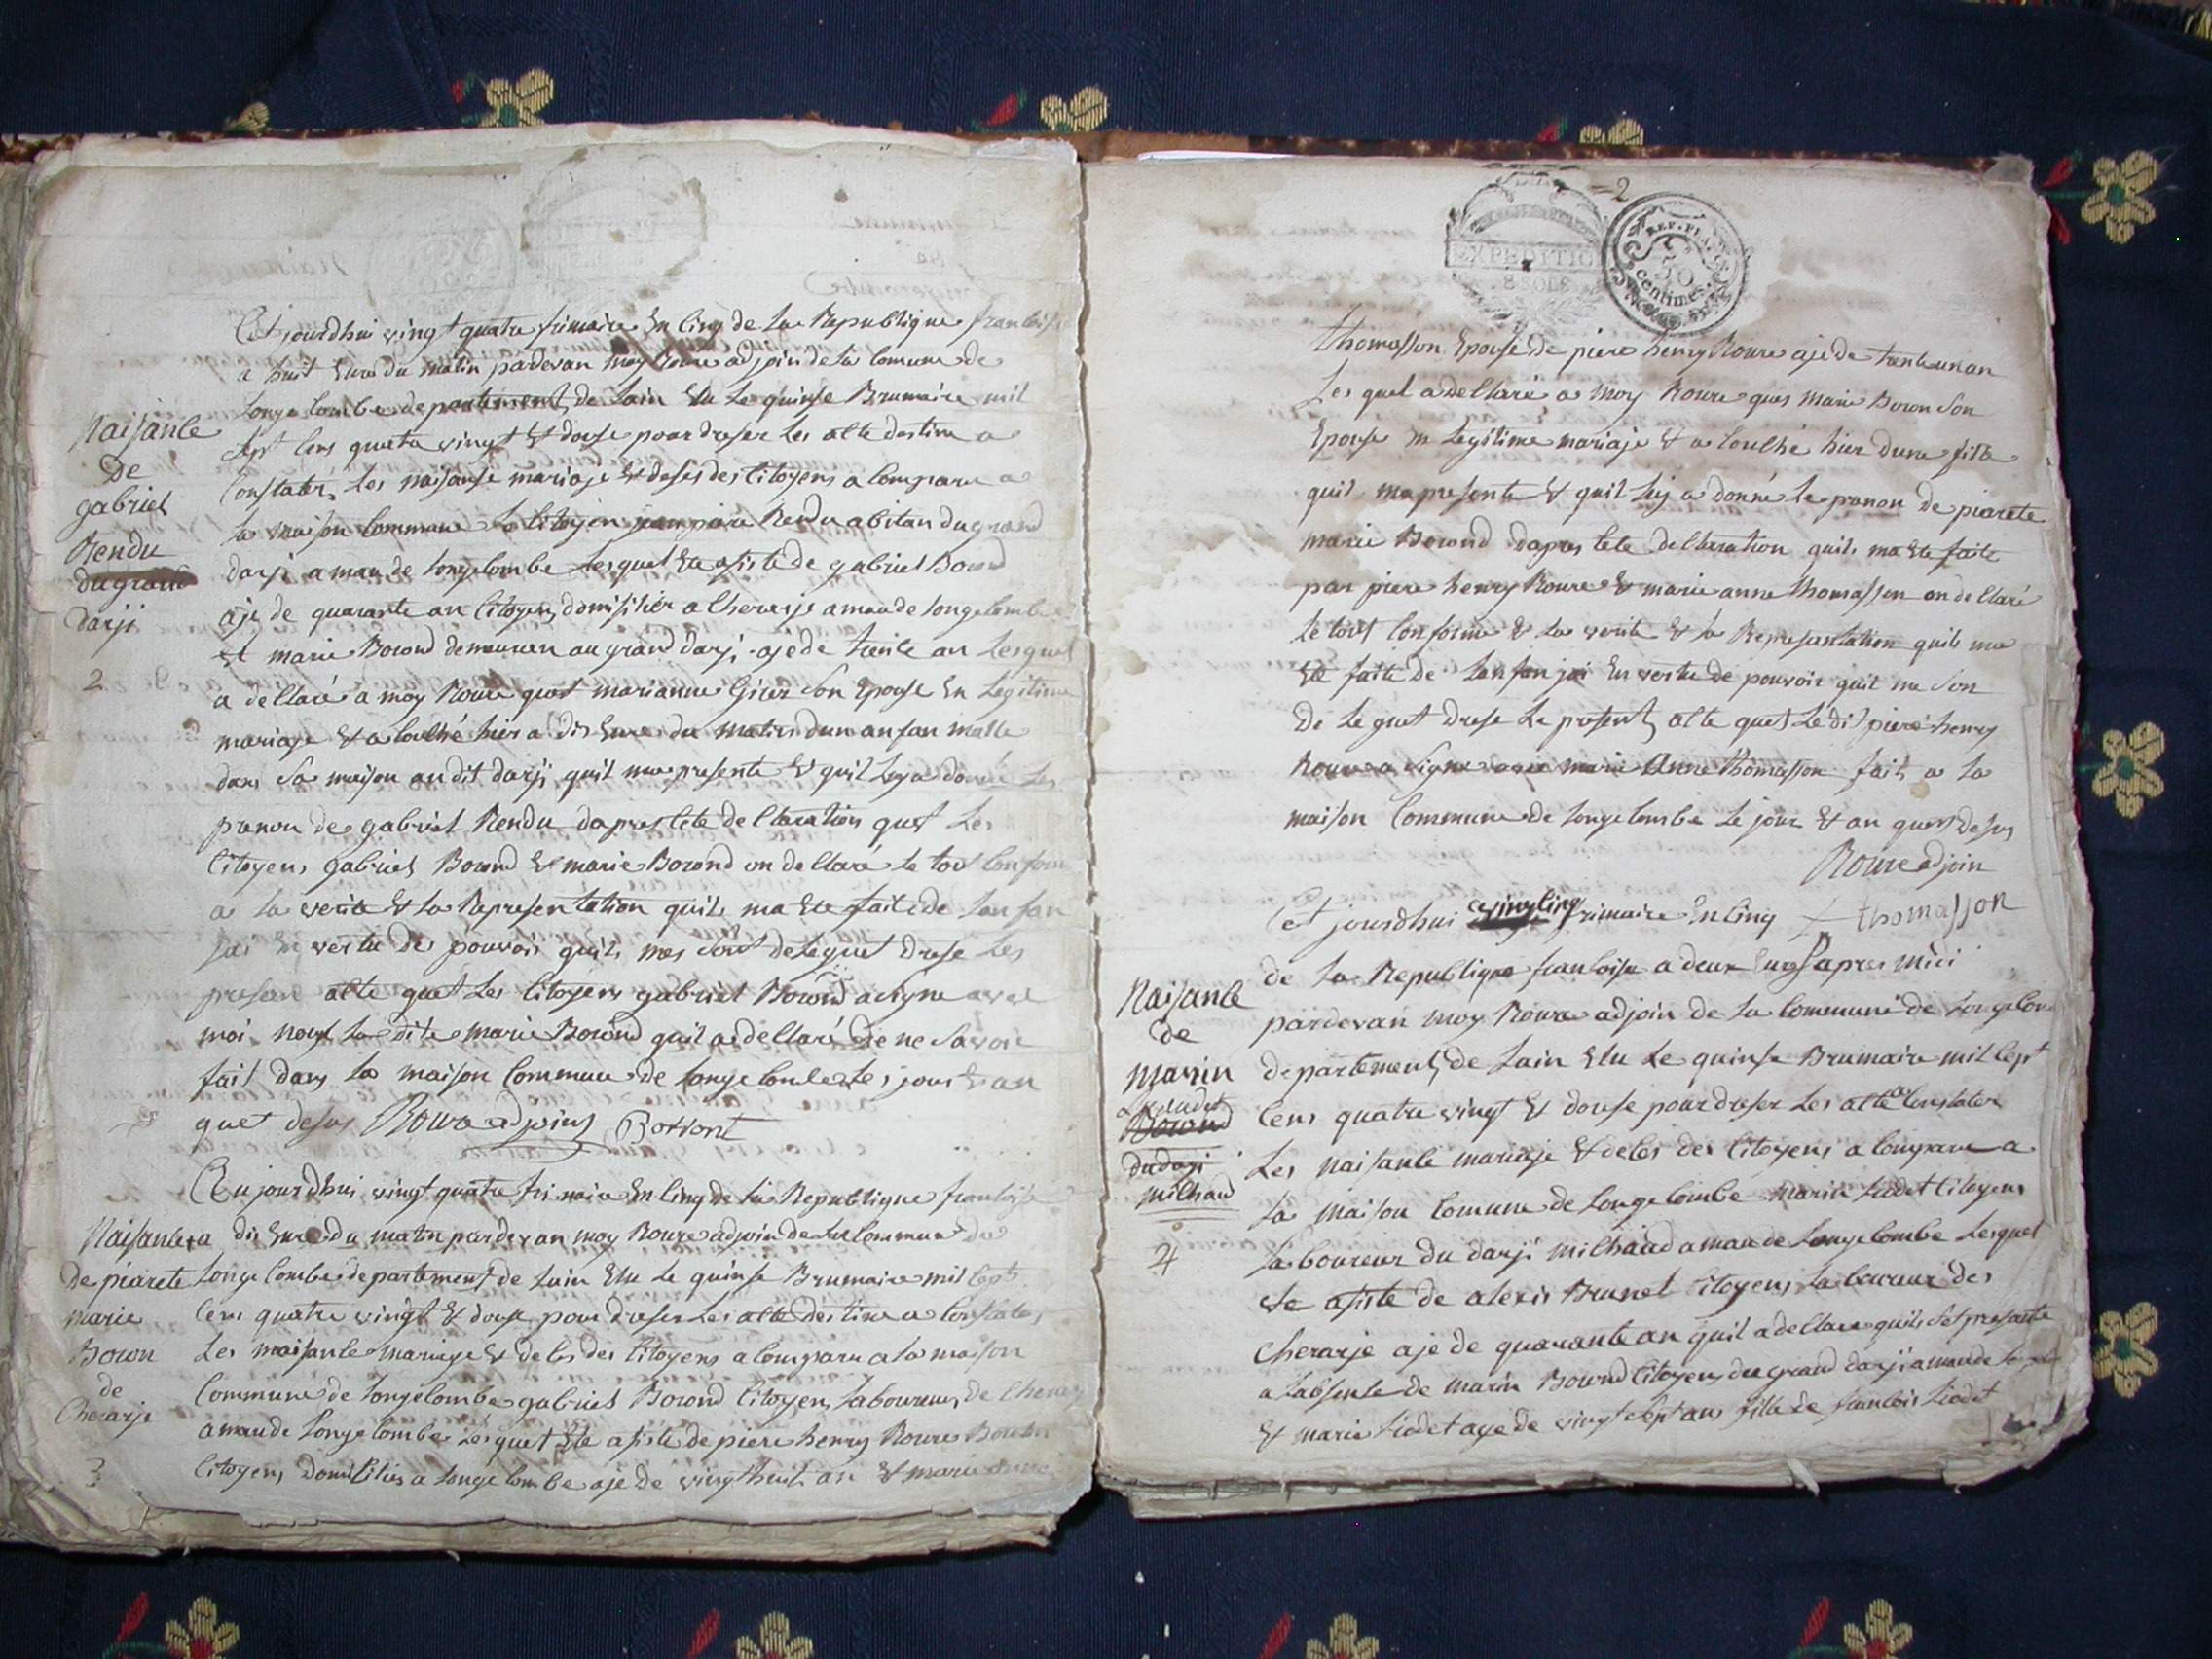 Cet jourdhui vingt quatre frimaire En cinq de la Republique francoise
a huit Eure du matin pardevan moy Roure adjoin de la Comune de
Longecombe departement de Lain Elu Le quinse Brumaire mil
sept Cens quatre vingt & douse pour dreser Les alte destine a
Constater Les naisanse mariaje & deses des Citoyens a Comparu a
la maison Commune Le Citoyen jean piere Rendu abitan du grand
darji amau de Longecombe Lesquel Ete asisté de gabriel Borond
aje de quarante an Citoyen domisilier a Cherarje amau de Longecombe
Et marie Borond demeuren au grand darji aje de trente an Lesquel
a declaré a moy Roure quet marianne Girer Son Epouse En Legitime
mariaje Et a Couché hier a dis Eure du matin dun anfan malle
dans Sa maison au dit darji quil ma presente & quil Luy a donné Les
prenon de gabriel Rendu dapres Cete declaration quet Les
Citoyens gabriel Borond & marie Borond on declaré Le tout Conforme
a La verite & La Representation quils ma Ete faite de Lanfan
jai En vertu des pouvoir quils mes Sont deleguet drese Les
presen alte quet Les Citoyens gabriel Borond a signe avec
moi nont La dite marie Borond quil a declaré de ne Savoir
fait dans La maison Commune de Longecombe Les jour & an
quet desus Roure adjoint Borront
Naisance
de
gabriel
Rendu
du grand
darji
2
Aujourdhui vingt quatre frimaire En cinq de La Republique francoise
a dis Eure du matin pardevan moy Roure adjoin de La Commune de
Longecombe departement de Lain Elu Le quinse Brumaire mil sept
Cens quatre vingt & douse pour dreser Les alte destine a Constater
Les naisance mariaje & deces des Citoyens a Comparu a La maison
Commune de Longecombe gabriel Borond Citoyen Laboureur de Cherarje
amau de Longecombe Lesquet Ete asisté de piere henry Roure
Citoyens domicilies a Longecombe aje de vingt huit an & marie anne
Naisance
de piarete
marie
Boron
de
Cherarje
3
2
EXPEDITIO
8 SOLS
REP. FRA.
50
centimes
thomasson Epouse de piere henry Roure aje de trente un an
Les quel a declaré a moy Roure ques marie Boron Son
Epouse En Legitime mariaje & a Couché hier dune fille
quil ma presente & quil Luy a donné Le prenon de piarete
marie Borond dapres Cete declaration quils ma Ete faite
par piere henry Roure & marie anne thomasson on declaré
Le tout Conforme & La verite & La Representation quils ma
Ete faite de Lanfan jai En vertu de pouvoir quil me Son
De Leguet drese Le present alte quet Le dit piere henry
Roure a signe avec marie Anne thomasson fait a La
maison Commune de Longecombe Le jour & an quet desus
Roure adjoin
thomasson
Cet jourdhui vingt cinq frimaire En cinq
de La Republique francoise a deux Eures apres midi
pardevan moy Roure adjoin de La Commune de Longecom
departement de Lain Elu Le quinse Brumaire mil Cept
Cens quatre vingt & douse pour dreser Les alte a Constater
Les naisance mariaje & deces des Citoyens a Comparu a
La maison Comune de Longecombe marin Liodet Citoyens
Laboureur du darji milhaud amau de Longecombe Lesquel
Ete asiste de alexis Brunet Citoyens Laboureur des
Cherarje aje de quarante an quil a declare quils Set presante
a Labsence de marin Borond Citoyens du grand darji amau de
& marie Liodet age de vingt Cept ans fille de francois Liodet
Naisance
de
Marin
Liodet
Borond
du darji
milhaud
4